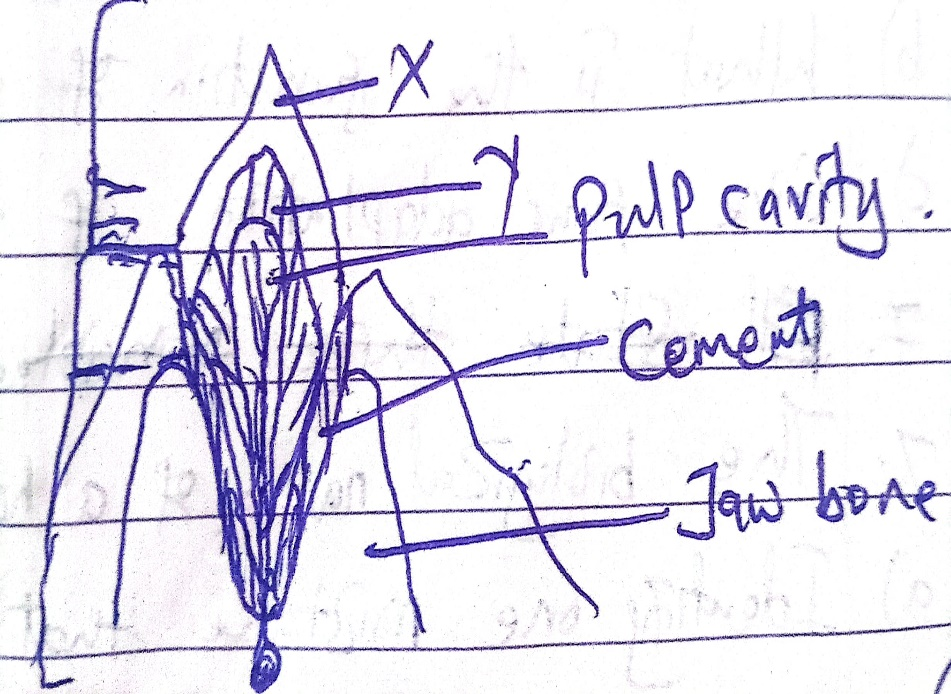 X
Y
pulp cavity.
Cement
Jaw bone